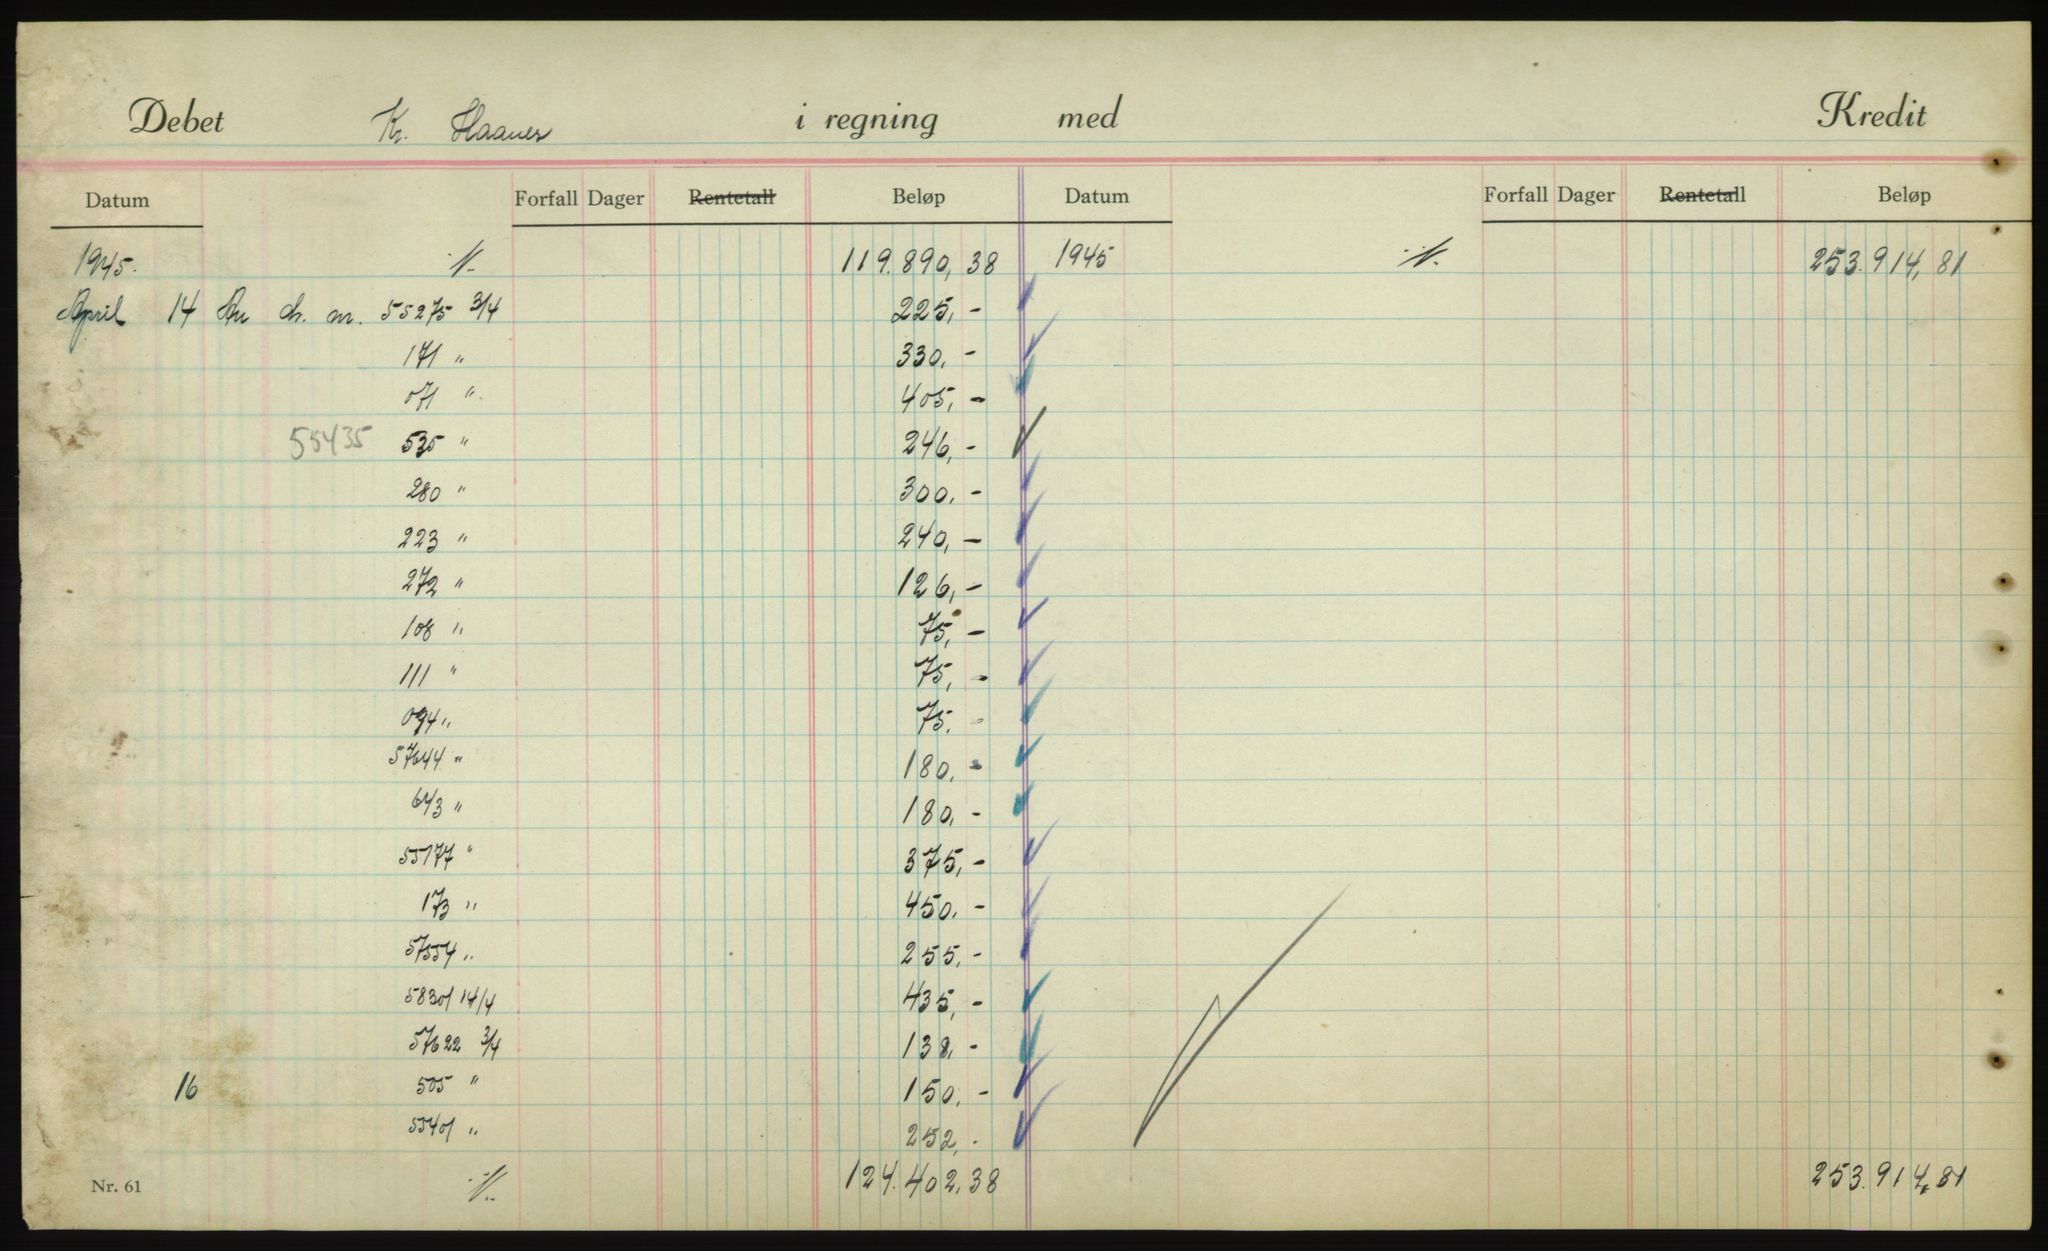 Debet Kr. Haanes i regning med Kredit
Datum Forfall Dager Rentetall Beløp Datum Forfall Dager Rentetall Beløp
1945. 119.890,38 1945 253.914,81
April 14 An ch. nr. 55275 3/4 225,-
171 " 330,-
071 " 405,-
55435 535 " 246,-
280 " 300,-
223 " 240,-
272 " 126,-
108 " 75,-
111 " 75,-
094 " 75,-
57644 " 180,-
643 " 180,-
55177 " 375,-
173 " 450,-
57554 " 255,-
58301 14/4 435,-
57622 3/4 138,-
16 505 " 150,-
55401 " 252,-
Nr. 61 124.402,38 253.914,81